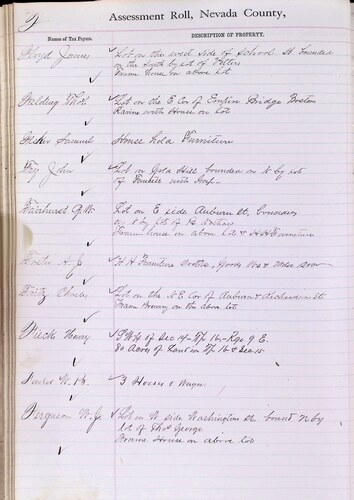 9
Assessment Roll, Nevada County,
Names of Tax Payers.
DESCRIPTION OF PROPERTY.
Floyd James
Lot on the west side of School St bounded
on the South by lot of
Frame house on above Lot
Fielding Thos
Lot on the E Cor of Empire Bridge Boston
Ravine with House on Lot
Fisher Samuel
House hold Furniture
Fry John
Lot on Gold Hill bounded on N by lot
of with
Fairhurst G. W.
Lot on E side Auburn St,
on N by lot of
Frame house on above Lot & H H Furniture
Foster A. J.
H H Furniture Goods
Fritz Charles
Lot on the N E Cor of Auburn & Richardson St
Frame Brewery on the above lot
Fuchs Henry
S W 1/4 of Sec 14 - Tp 16 - Rge 9 E.
80 Acres of Land in Tp 16 & Sec 15
W. H.
3 Horses & Wagon
Ferguson W. J.
Lot on W. side Washington St bound N by
lot of Thos George
Frame House on above Lot